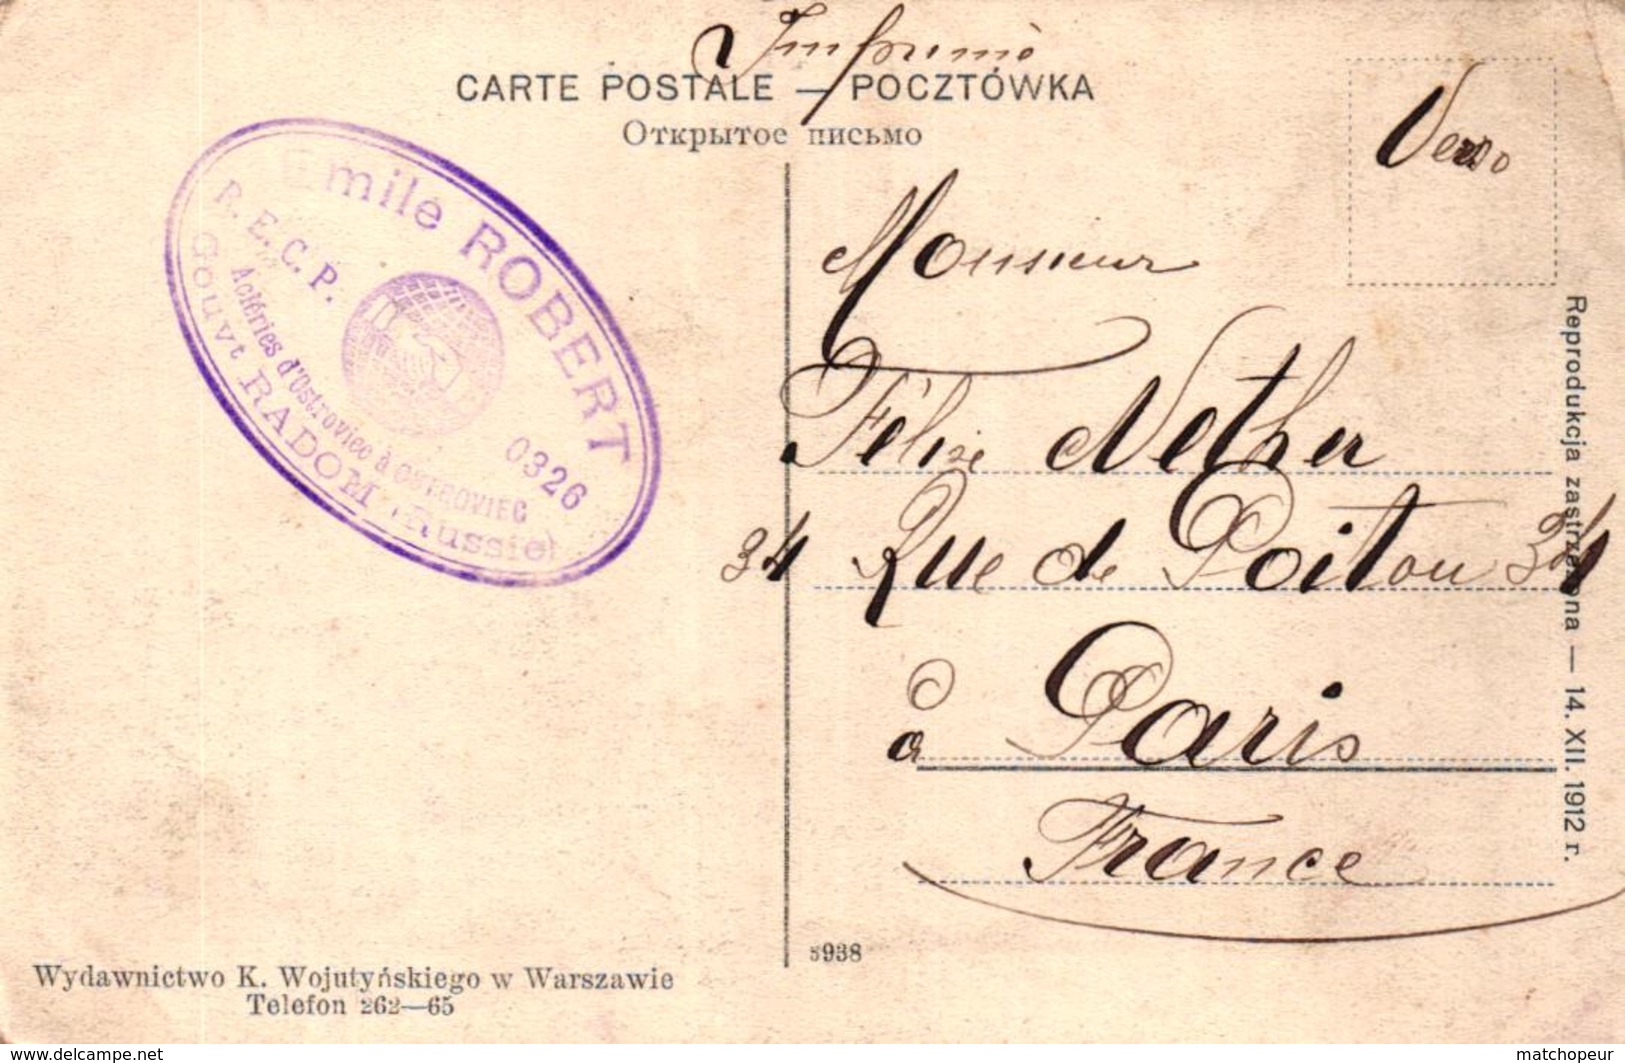 Imprimé
CARTE POSTALE — POCZTÓWKA
Открытое письмо
Verso
Emile ROBERT
R. E. C. P.
0326
Aciéries d'Ostroviec à OSTROVIEC
Gouvt RADOM (Russie)
Monsieur
Félix Nether
34 Rue de Poitou 34
à Paris
France
Reprodukcja zastrzeżona — 14. XII. 1912 r.
5938
Wydawnictwo K. Wojutyńskiego w Warszawie
Telefon 262—65
www.delcampe.net
matchopeur